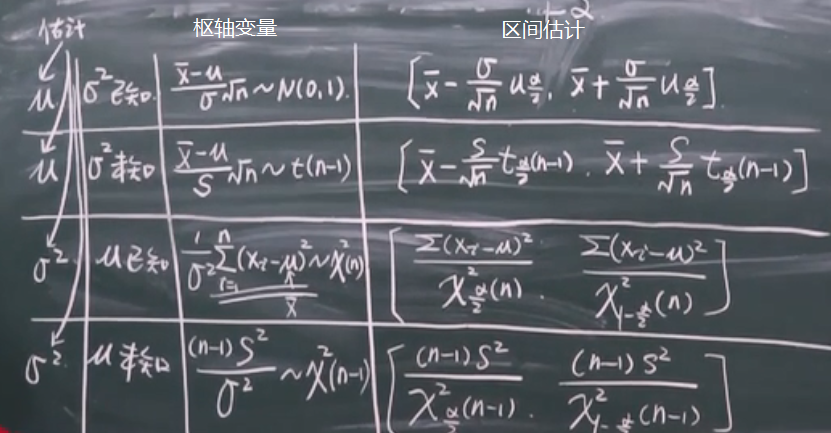 估计 枢轴变量 区间估计
μ σ²已知 (x̄-μ)/σ √n ~ N(0,1) [x̄ - σ/√n u_{α/2}, x̄ + σ/√n u_{α/2}]
μ σ²未知 (x̄-μ)/S √n ~ t(n-1) [x̄ - S/√n t_{α/2}(n-1), x̄ + S/√n t_{α/2}(n-1)]
σ² μ已知 1/σ² Σ_{i=1}^{n}(x_i-μ)² ~ χ²(n) [Σ(x_i-μ)²/χ²_{α/2}(n), Σ(x_i-μ)²/χ²_{1-α/2}(n)]
x̄
σ² μ未知 (n-1)S²/σ² ~ χ²(n-1) [(n-1)S²/χ²_{α/2}(n-1), (n-1)S²/χ²_{1-α/2}(n-1)]